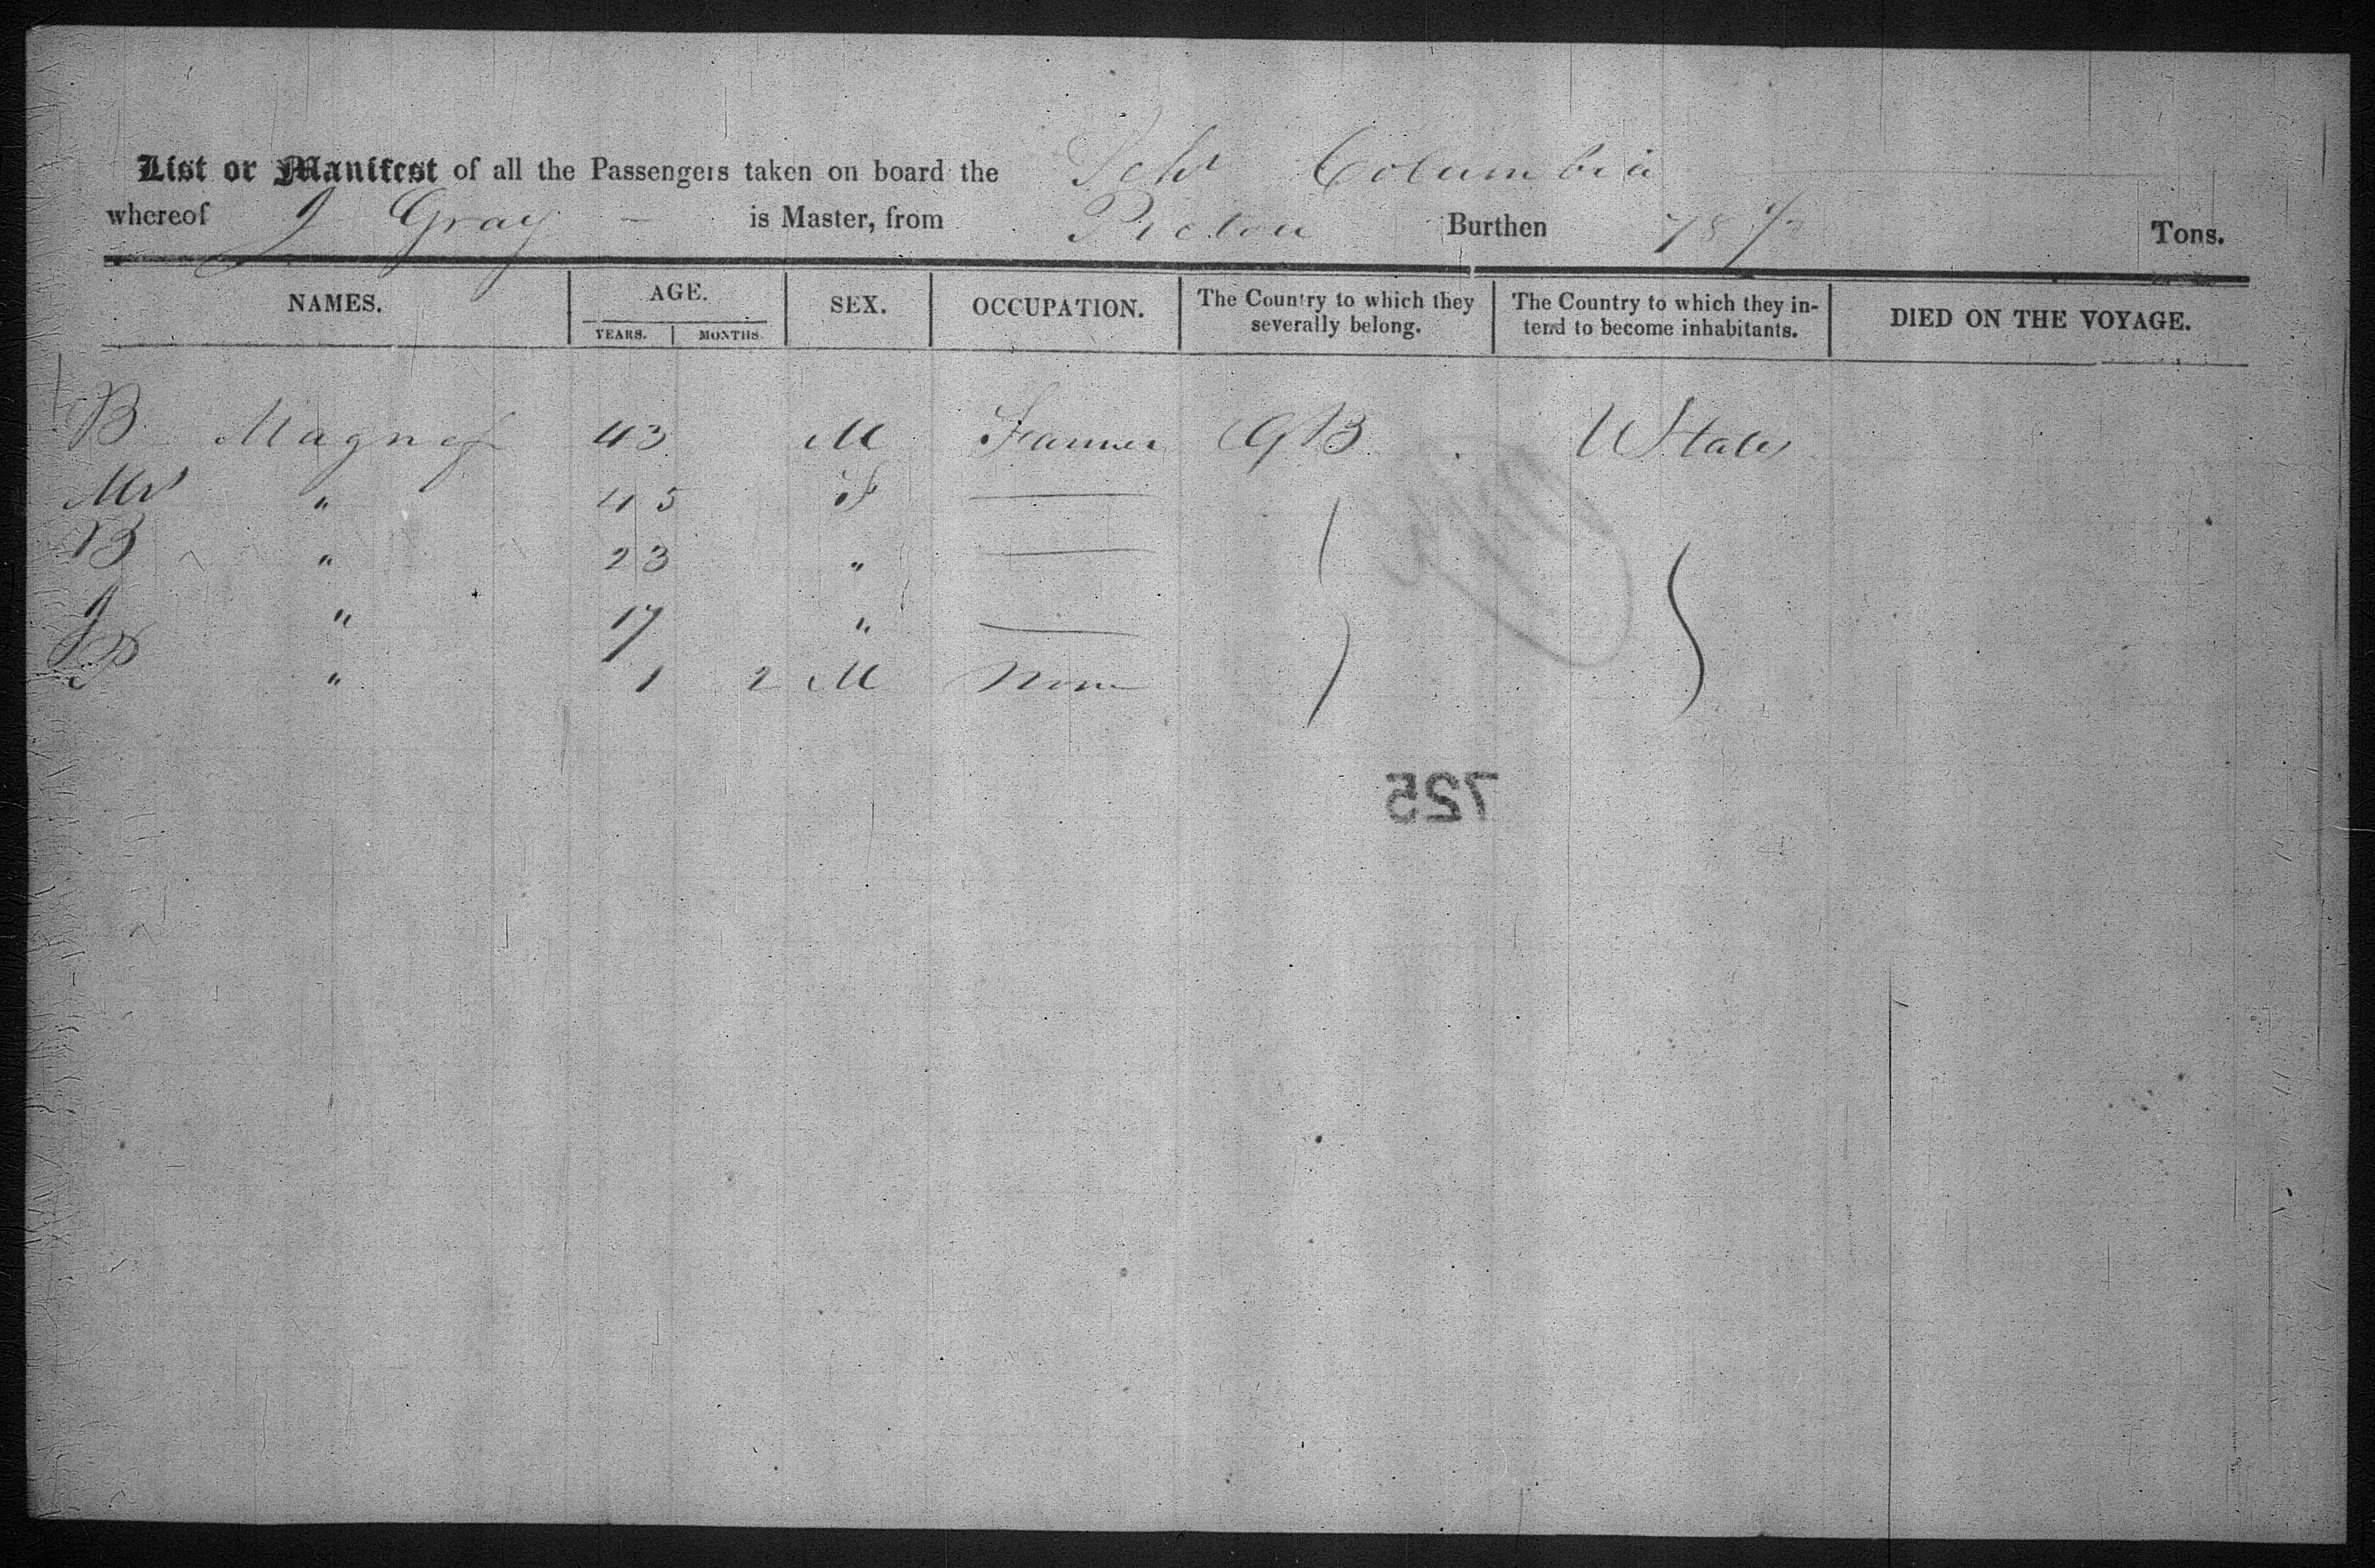 List or Manifest of all the Passengers taken on board the Schr Columbia
whereof J Gray is Master, from Pictou Burthen 78 Tons.
NAMES. AGE. YEARS. MONTHS. SEX. OCCUPATION. The Country to which they severally belong. The Country to which they intend to become inhabitants. DIED ON THE VOYAGE.
B Magness 43 M Farmer GB UStates
Mrs " 45 F
B " 23 "
J " 17 "
" 1 2 M None
725